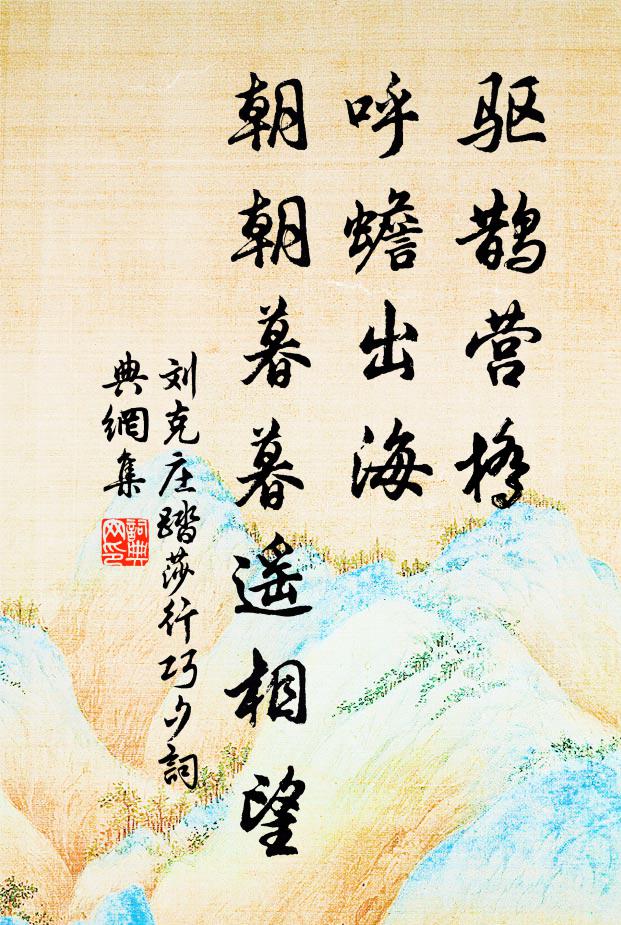 驱鹊营桥
呼蟾出海
朝朝暮暮遥相望
刘克庄踏莎行巧夕詞
典網集
詞典
网印